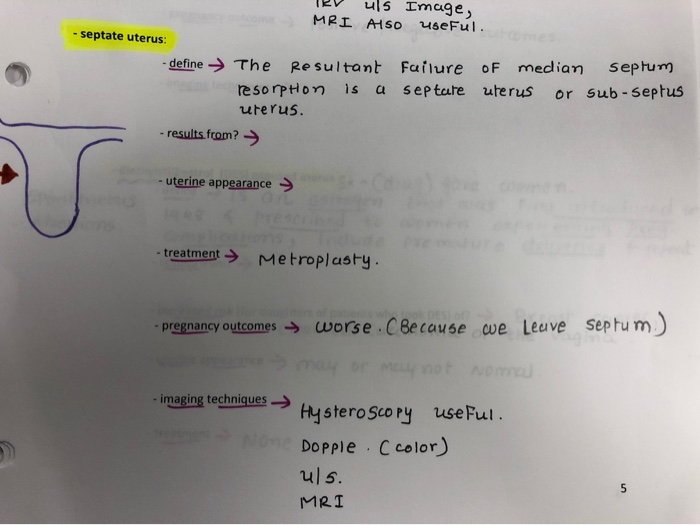 TRV u/s Image,
MRI Also useFul.
- septate uterus:
- define → The Resultant Failure oF median septum
resorption is a septate uterus or sub-septus
uterus.
- results from? →
- uterine appearance →
- treatment → Metroplasty.
- pregnancy outcomes → worse. (Because we Leave septum.)
- imaging techniques → Hysteroscopy useFul.
Dopple. (color)
u/s.
MRI
5